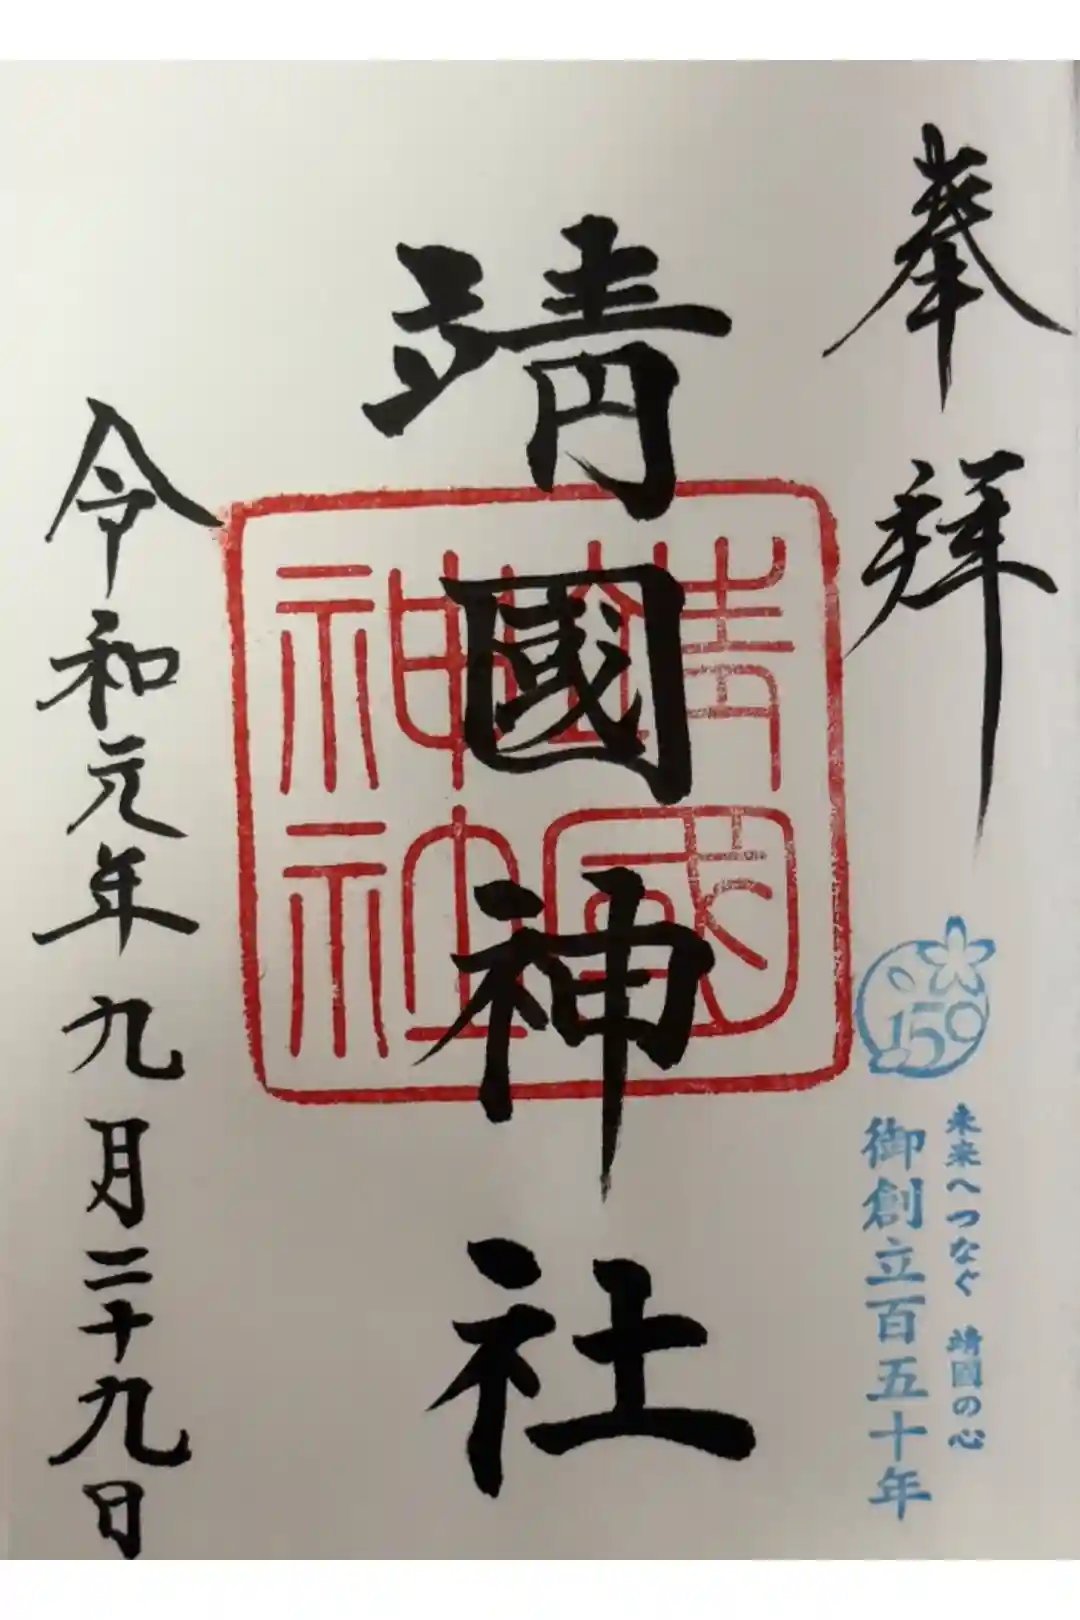 奉拝
150
未来へつなぐ 靖國の心
御創立百五十年
靖國神社
靖國
神社
令和元年九月二十九日